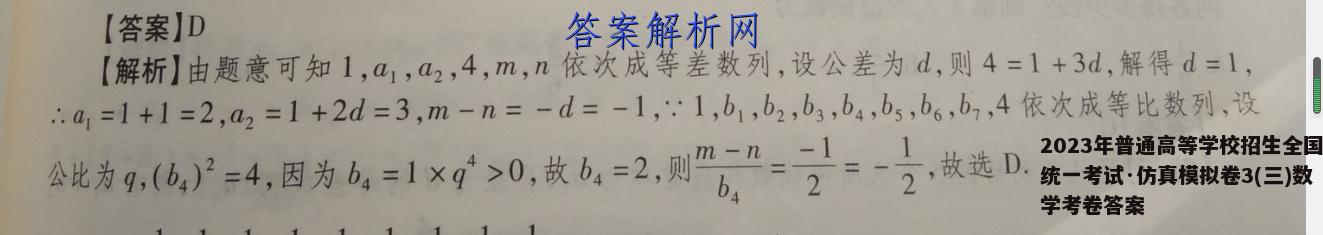 【答案】D
答案解析网
【解析】由题意可知 1,a₁,a₂,4,m,n 依次成等差数列,设公差为 d,则 4=1+3d,解得 d=1,
∴a₁=1+1=2,a₂=1+2d=3,m-n=-d=-1,∵1,b₁,b₂,b₃,b₄,b₅,b₆,b₇,4 依次成等比数列,设
公比为 q,(b₄)²=4,因为 b₄=1×q⁴>0,故 b₄=2,则(m-n)/b₄=-1/2=-1/2,故选 D.
2023年普通高等学校招生全国
统一考试·仿真模拟卷3(三)数
学考卷答案